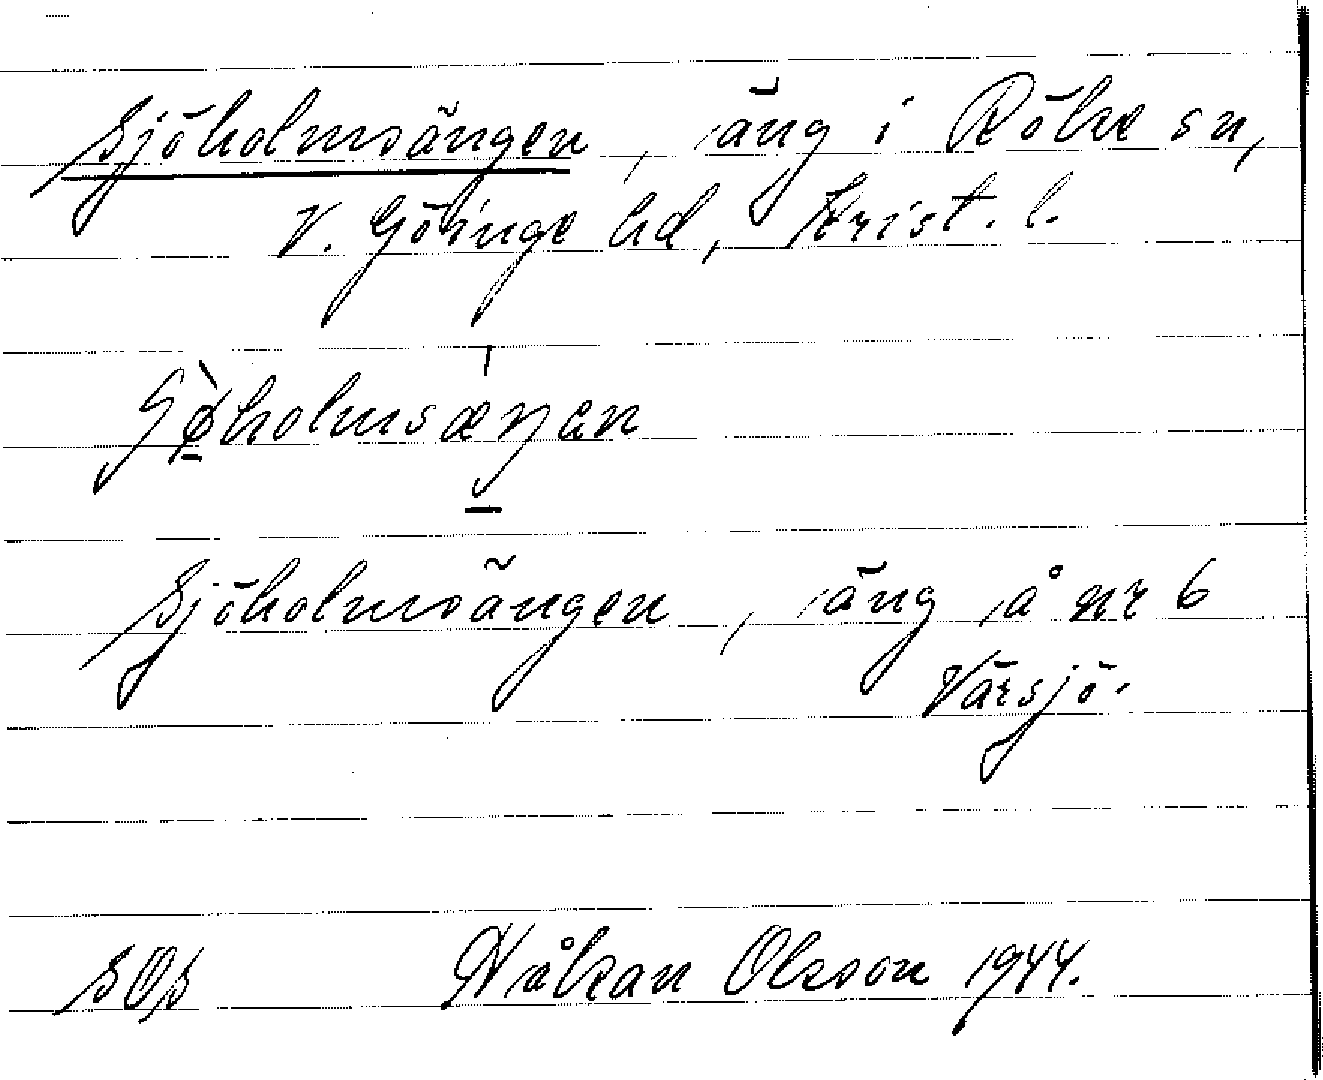 Sjöholmsängen, äng i Röke sn,
V. Göinge hd, Krist. l.
Sjöholmsängen, äng å nr 6
Värsjö.
SOS Håkan Olsson 1944.